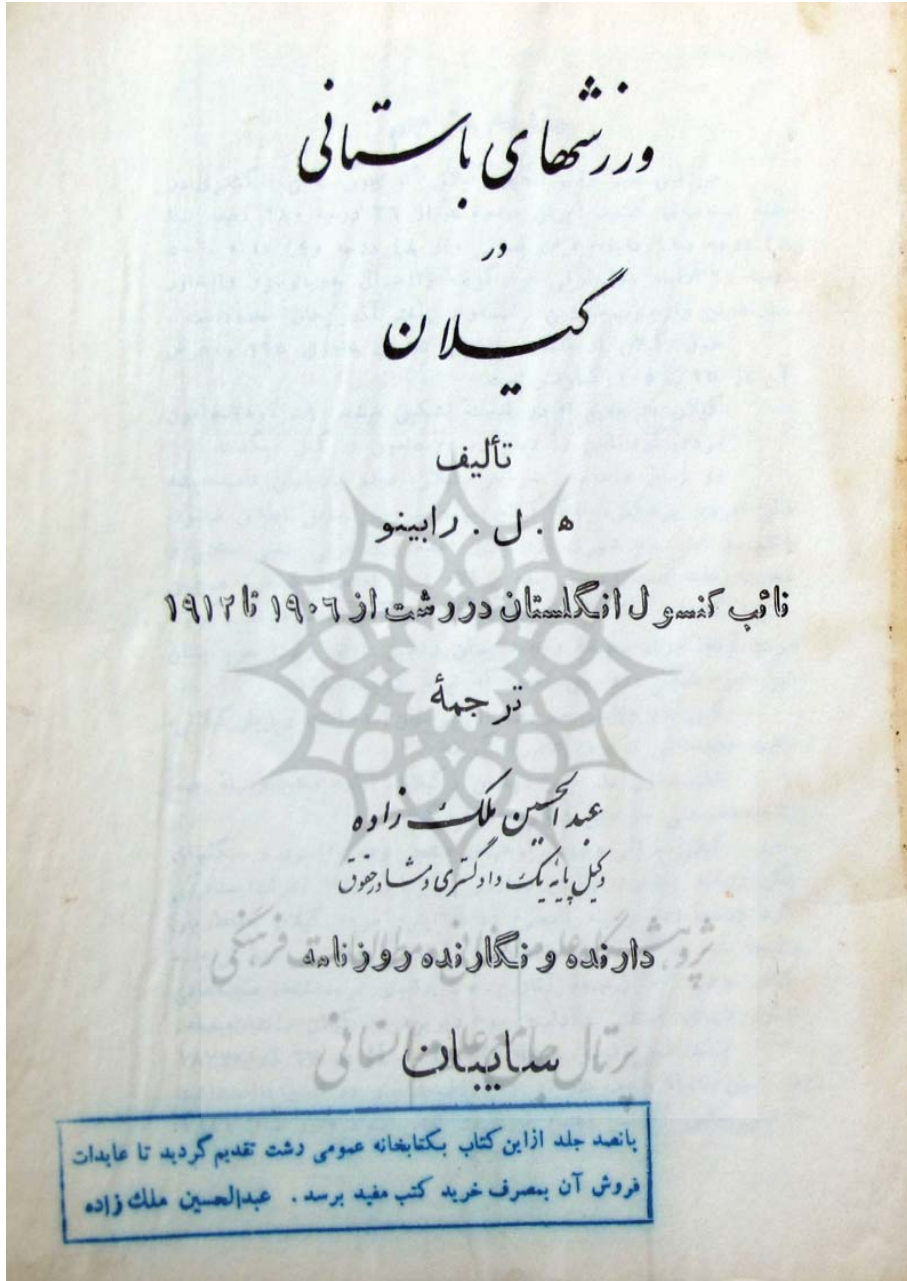 ورزشهای باستانی
در
گیلان
تألیف
ه . ل . رابینو
نائب کنسول انگلستان در رشت از ۱۹۰٦ تا ۱۹۱۲
ترجمهٔ
عبدالحسین ملک زاده
وکیل پایه یک دادگستری و مشاور حقوق
دارنده و نگارنده روزنامه
پژوهشگاه علوم انسانی و مطالعات فرهنگی
سایبان
پرتال جامع علوم انسانی
پانصد جلد ازاین کتاب بکتابخانه عمومی رشت تقدیم گردید تا عایدات
فروش آن بمصرف خرید کتب مفید برسد . عبدالحسین ملك زاده